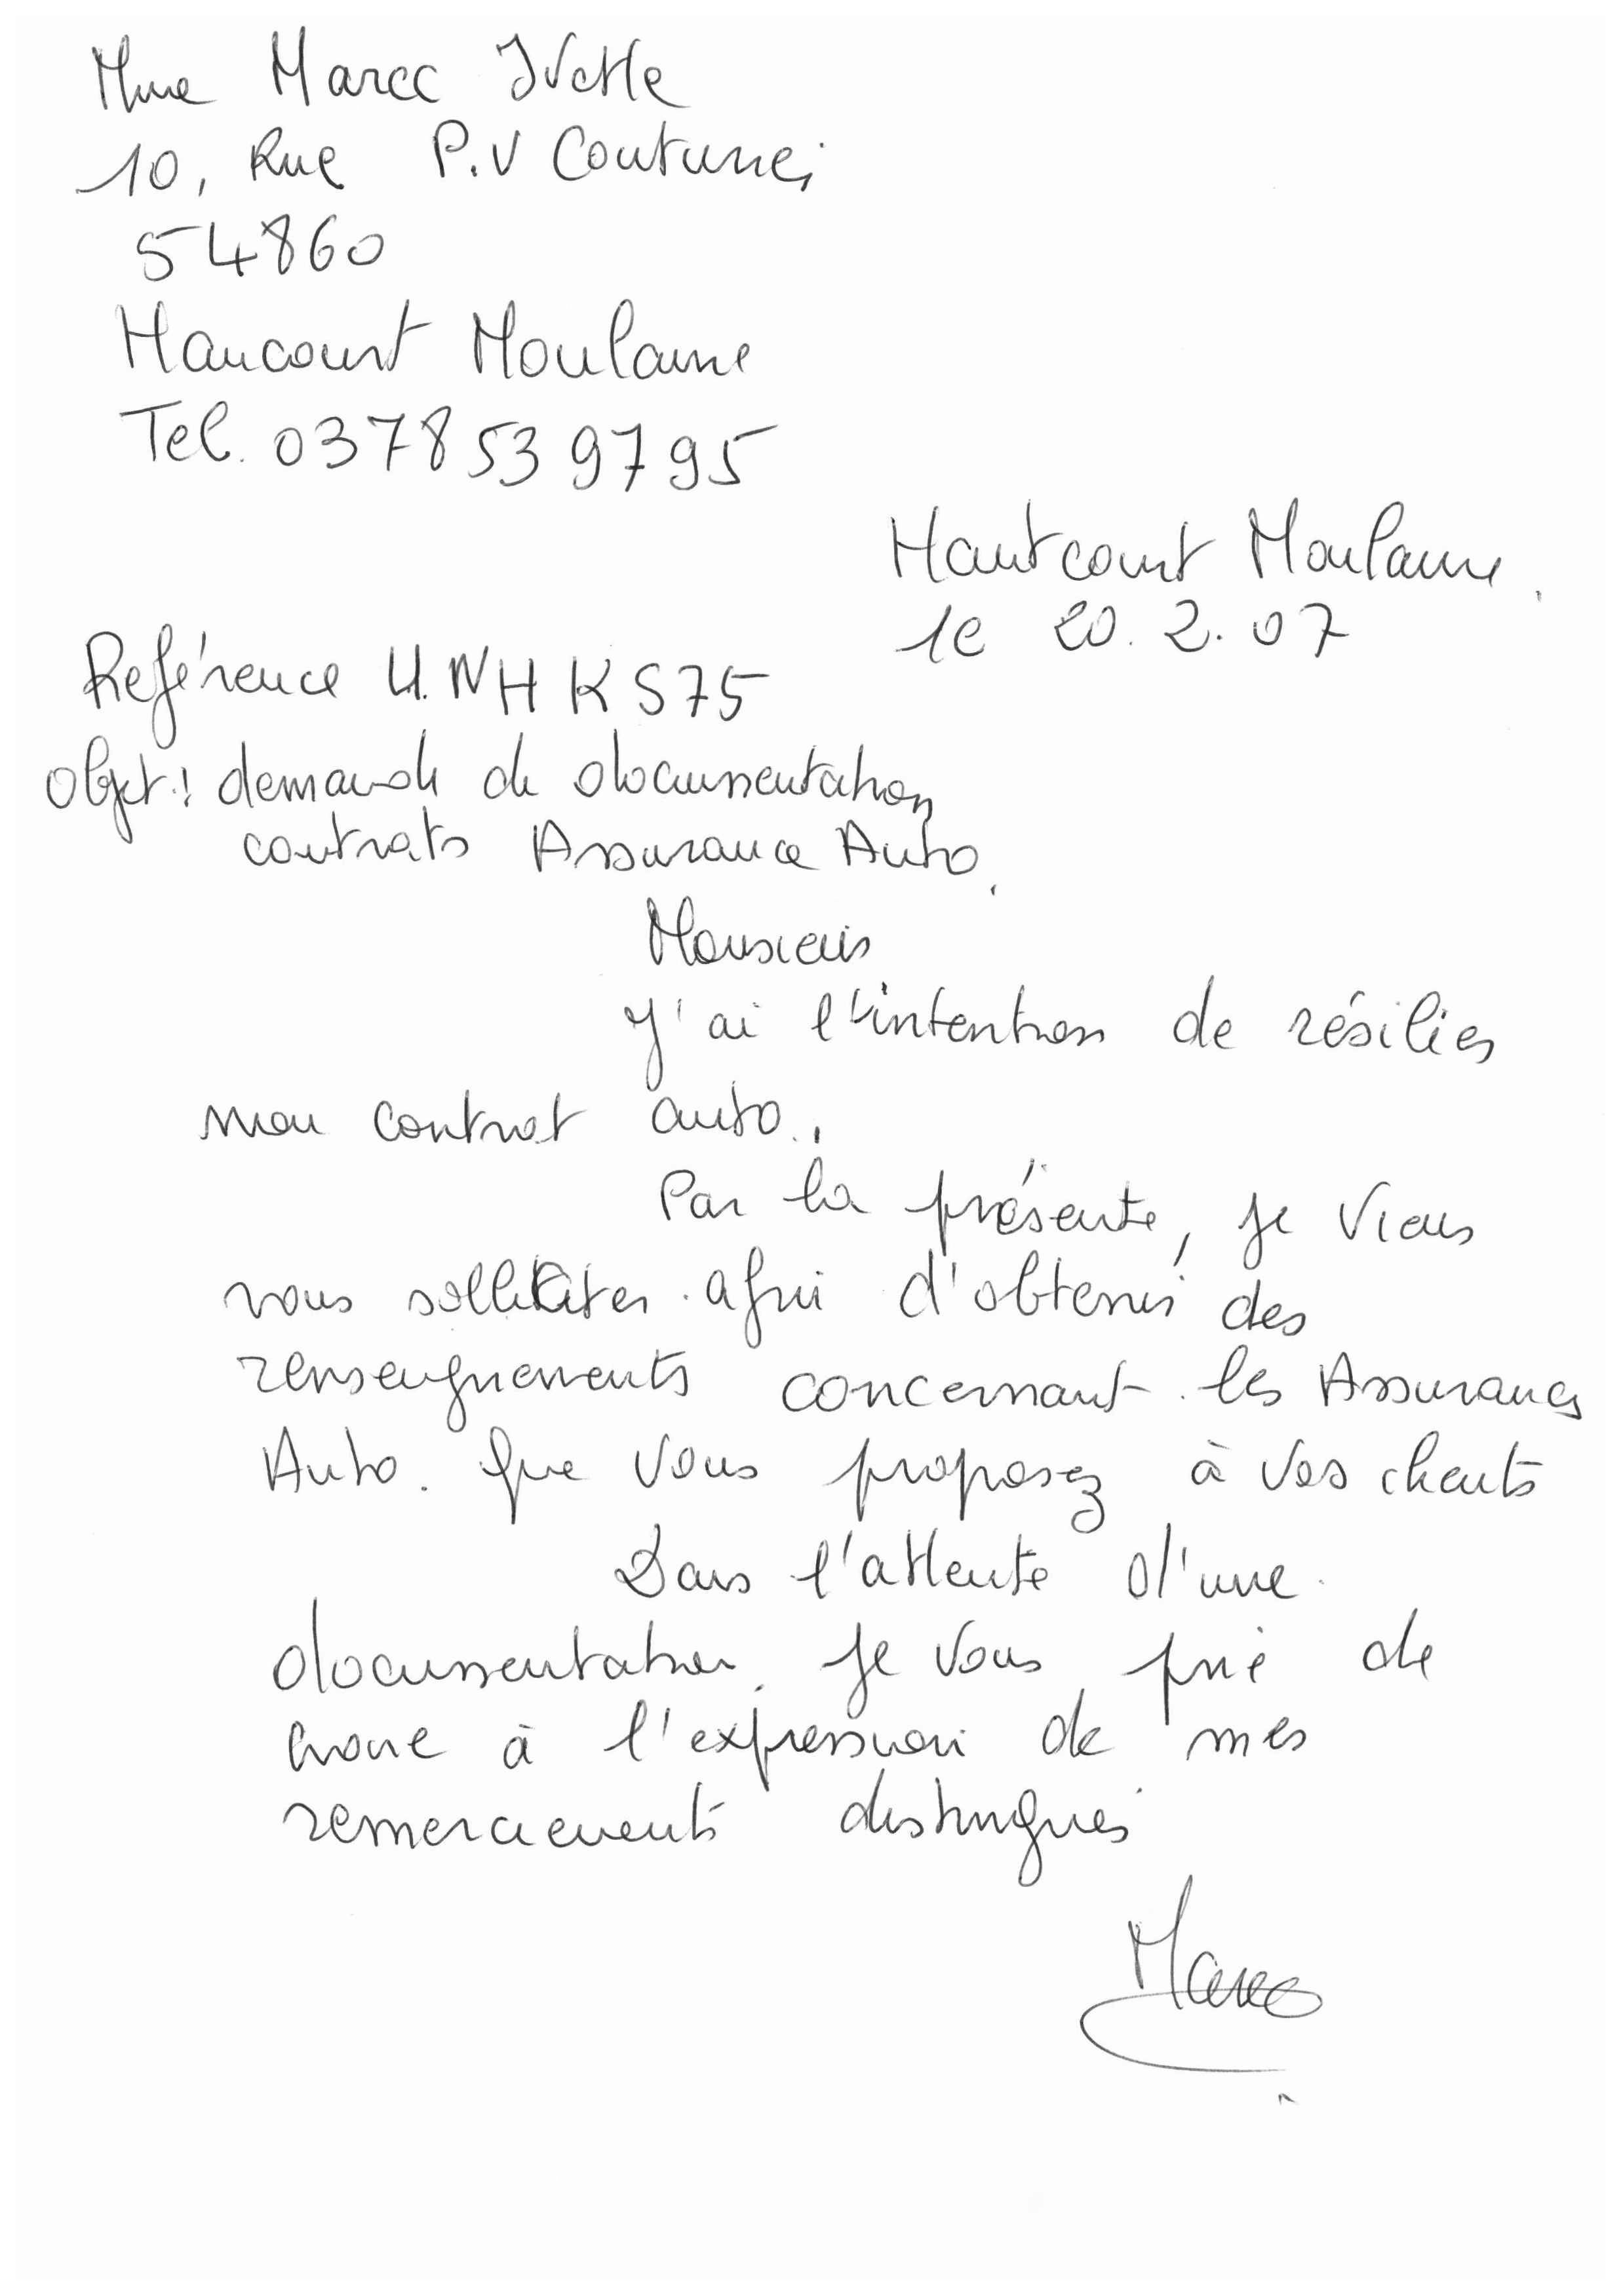 Mme Marcc Ivette
10, Rue P.V Couturier
54860
Haucourt Moulaine
Tel. 0378539795
Hautcourt Moulaine.
le 20.2.07
Reférence U.NHKS75
Objet: demande de documentation
contrats Assurance Auto.
Monsieur
J'ai l'intention de résilier
mon contrat auto.
Par la présente, je viens
vous solliciter afin d'obtenir des
renseignements concernant les Assurances
Auto. que vous proposez à vos clients
Dans l'attente d'une
documentation, je vous prie de
croire à l'expression de mes
remerciements distingués